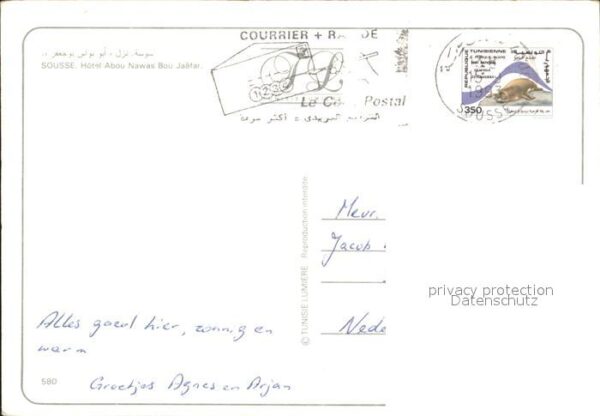 سوسة. نزل « أبو نواس بوجعفر »
SOUSSE. Hôtel Abou Nawas Bou Jaâfar.
COURRIER + RAPIDE
1234
Le Code Postal
التراقيم البريدي = أكثر سرعة
REPUBLIQUE TUNISIENNE
350
SOUSSE
© TUNISIE LUMIERE Reproduction interdite
Mevr.
Jacob
Nede
privacy protection
Datenschutz
Alles goed hier, zonnig en
warm
Groetjes Agnes en Arjan
580